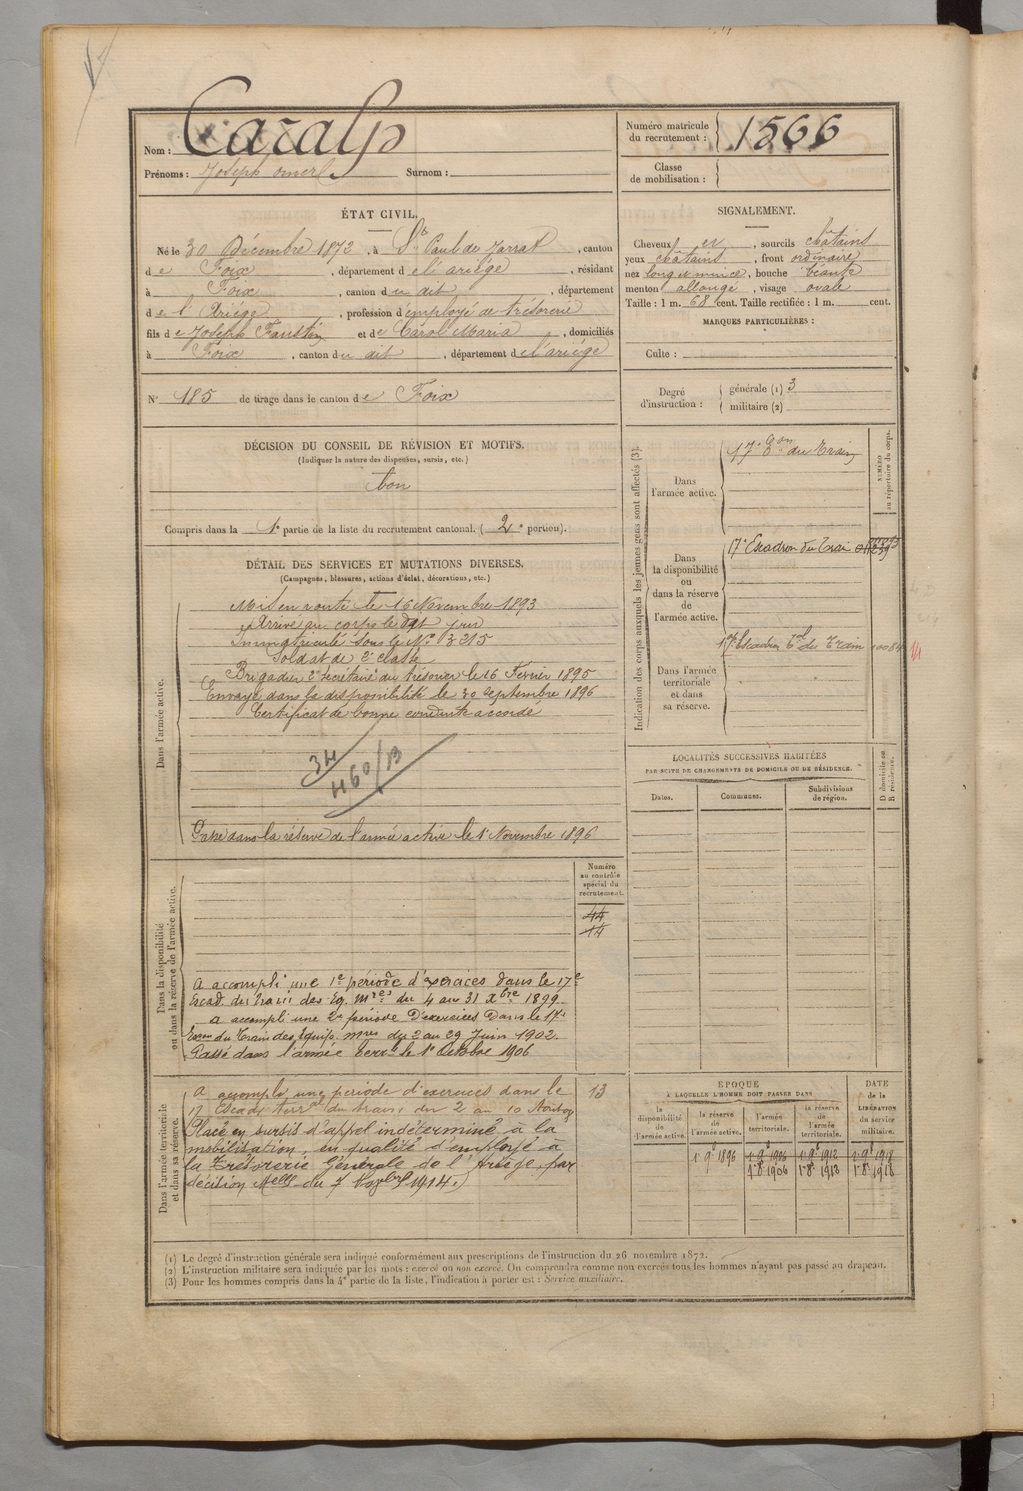 Nom : Caralp
Prénoms : Joseph Omer Surnom :
Numéro matricule du recrutement : 1566
Classe de mobilisation :
ÉTAT CIVIL.
Né le 30 Décembre 1872, à St Paul de Jarrat, canton
de Foix, département de l'ariège, résidant
à Foix, canton du dit, département
de l'Ariège, profession d'employé de trésorerie
fils de Joseph Faustin et de Carol Maria, domiciliés
à Foix, canton du dit, département de l'ariège
N° 185 de tirage dans le canton de Foix
SIGNALEMENT.
Cheveux et, sourcils châtains
yeux châtains, front ordinaire
nez long et mince, bouche béante
menton allongé, visage ovale
Taille : 1 m. 68 cent. Taille rectifiée : 1 m. cent.
MARQUES PARTICULIÈRES :
Culte :
Degré d'instruction : générale (1) 3
militaire (2)
DÉCISION DU CONSEIL DE RÉVISION ET MOTIFS.
(Indiquer la nature des dispenses, sursis, etc.)
bon
Compris dans la 1e partie de la liste du recrutement cantonal. (2e portion).
DÉTAIL DES SERVICES ET MUTATIONS DIVERSES.
(Campagnes, blessures, actions d'éclat, décorations, etc.)
Dans l'armée active.
Mis en route le 16 Novembre 1893
Arrivé au corps le dit jour
Immatriculé sous le N° 3215
Soldat de 2e classe
Brigadier 2e secrétaire du trésorier le 16 Février 1895
Envoyé dans la disponibilité le 30 Septembre 1896
Certificat de bonne conduite accordé
34
460/13
Passé dans la réserve de l'armée active le 1er Novembre 1896
Dans la disponibilité ou dans la réserve de l'armée active.
Numéro au contrôle spécial du recrutement.
44
14
A accompli une 1e période d'exercices dans le 17e
Escad. du train des Eq. Mres du 4 au 31 Xbre 1899
A accompli une 2e période d'exercices dans le 17e
Escon du Train des Equip. mres du 2 au 29 Juin 1902.
Passé dans l'armée terrle le 1er Octobre 1906
Dans l'armée territoriale et dans sa réserve.
A accompli une période d'exercices dans le 13
17 Escad. terr. du train du 2 au 10
Placé en sursis d'appel indéterminé à la
mobilisation, en qualité d'employé à
la Trésorerie Générale de l'Ariège, par
décision Melle du 7 1914.
Indication des corps auxquels les jeunes gens sont affectés (3).
NUMÉRO au répertoire du corps.
Dans l'armée active.
17e Eon du Train
Dans la disponibilité ou dans la réserve de l'armée active.
17e Escadron du Train
Dans l'armée territoriale et dans sa réserve.
17e Escadron Tal du Train 10084
LOCALITÉS SUCCESSIVES HABITÉES
PAR SUITE DE CHANGEMENTS DE DOMICILE OU DE RÉSIDENCE.
D domicile ou R résidence.
Dates. Communes. Subdivisions de région.
ÉPOQUE
À LAQUELLE L'HOMME DOIT PASSER DANS
DATE de la LIBÉRATION du service militaire.
la disponibilité de l'armée active. la réserve de l'armée active. l'armée territoriale. la réserve de l'armée territoriale.
1er 9e 1896 1er 9e 1906 1er 9e 1912 1er 9e 1918
1er 8e 1906 1er 8e 1913 1er 8e 1918
(1) Le degré d'instruction générale sera indiqué conformément aux prescriptions de l'instruction du 26 novembre 1872.
(2) L'instruction militaire sera indiquée par les mots : exercé ou non exercé. On comprendra comme non exercés tous les hommes n'ayant pas passé au drapeau.
(3) Pour les hommes compris dans la 4e partie de la liste, l'indication à porter est : Service auxiliaire.